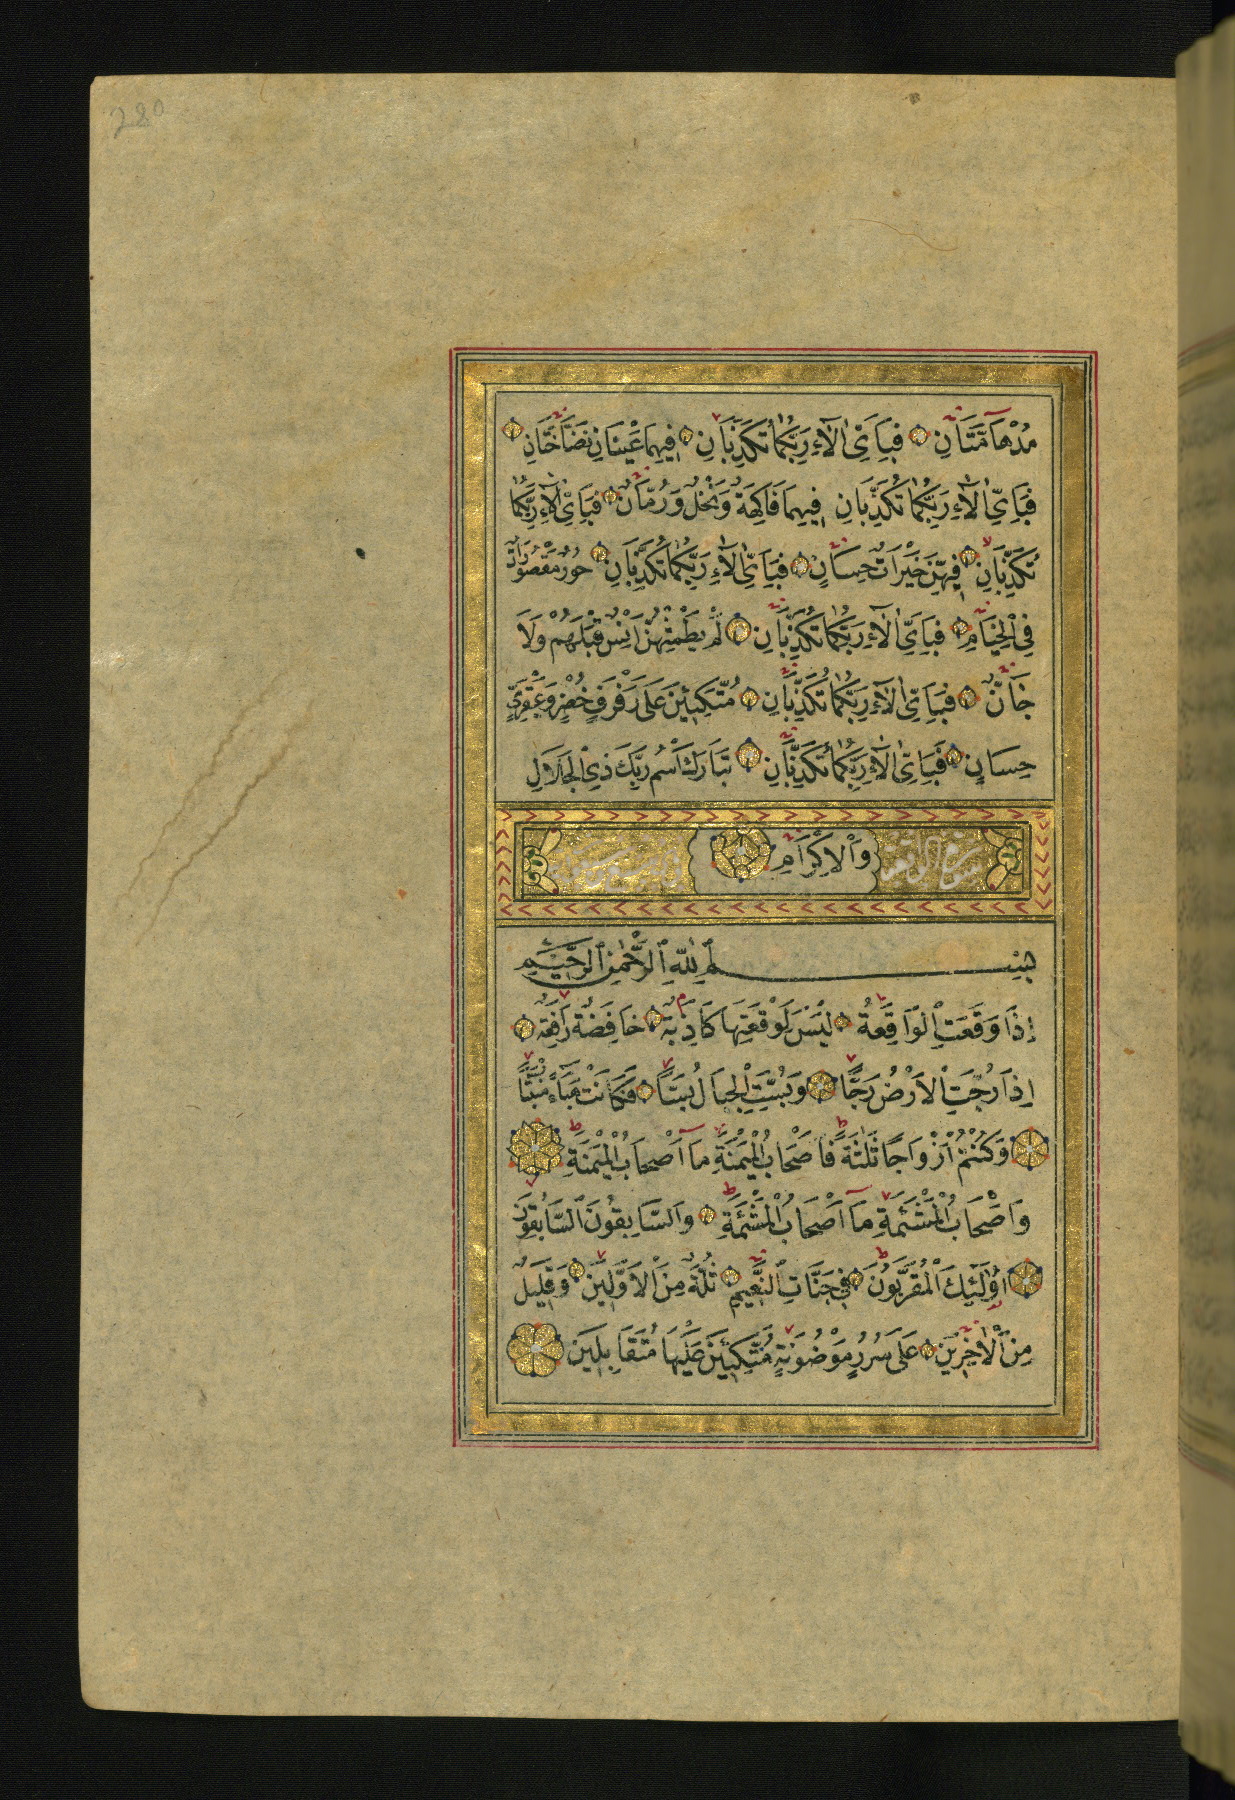 280
مُدْهَآمَّتَانِ فَبِاَيِّ اٰلَآءِ رَبِّكُمَا تُكَذِّبَانِ فِيهِمَا عَيْنَانِ نَضَّاخَتَانِ
فَبِاَيِّ اٰلَآءِ رَبِّكُمَا تُكَذِّبَانِ فِيهِمَا فَاكِهَةٌ وَنَخْلٌ وَرُمَّانٌ فَبِاَيِّ اٰلَآءِ رَبِّكُمَا
تُكَذِّبَانِ فِيهِنَّ خَيْرَاتٌ حِسَانٌ فَبِاَيِّ اٰلَآءِ رَبِّكُمَا تُكَذِّبَانِ حُورٌ مَقْصُورَاتٌ
فِي الْخِيَامِ فَبِاَيِّ اٰلَآءِ رَبِّكُمَا تُكَذِّبَانِ لَمْ يَطْمِثْهُنَّ اِنْسٌ قَبْلَهُمْ وَلَا
جَانٌّ فَبِاَيِّ اٰلَآءِ رَبِّكُمَا تُكَذِّبَانِ مُتَّكِـِٔينَ عَلَى رَفْرَفٍ خُضْرٍ وَعَبْقَرِيٍّ
حِسَانٍ فَبِاَيِّ اٰلَآءِ رَبِّكُمَا تُكَذِّبَانِ تَبَارَكَ اسْمُ رَبِّكَ ذِي الْجَلَالِ
سورة الواقعة وَالْاِكْرَامِ
بِسْمِ اللّٰهِ الرَّحْمٰنِ الرَّحِيمِ
اِذَا وَقَعَتِ الْوَاقِعَةُ لَيْسَ لِوَقْعَتِهَا كَاذِبَةٌ خَافِضَةٌ رَافِعَةٌ
اِذَا رُجَّتِ الْاَرْضُ رَجًّا وَبُسَّتِ الْجِبَالُ بَسًّا فَكَانَتْ هَبَآءً مُنْبَثًّا
وَكُنْتُمْ اَزْوَاجًا ثَلٰثَةً فَاَصْحَابُ الْمَيْمَنَةِ مَآ اَصْحَابُ الْمَيْمَنَةِ
وَاَصْحَابُ الْمَشْـَٔمَةِ مَآ اَصْحَابُ الْمَشْـَٔمَةِ وَالسَّابِقُونَ السَّابِقُونَ
اُولٰٓئِكَ الْمُقَرَّبُونَ فِي جَنَّاتِ النَّعِيمِ ثُلَّةٌ مِنَ الْاَوَّلِينَ وَقَلِيلٌ
مِنَ الْاٰخِرِينَ عَلَى سُرُرٍ مَوْضُونَةٍ مُتَّكِـِٔينَ عَلَيْهَا مُتَقَابِلِينَ